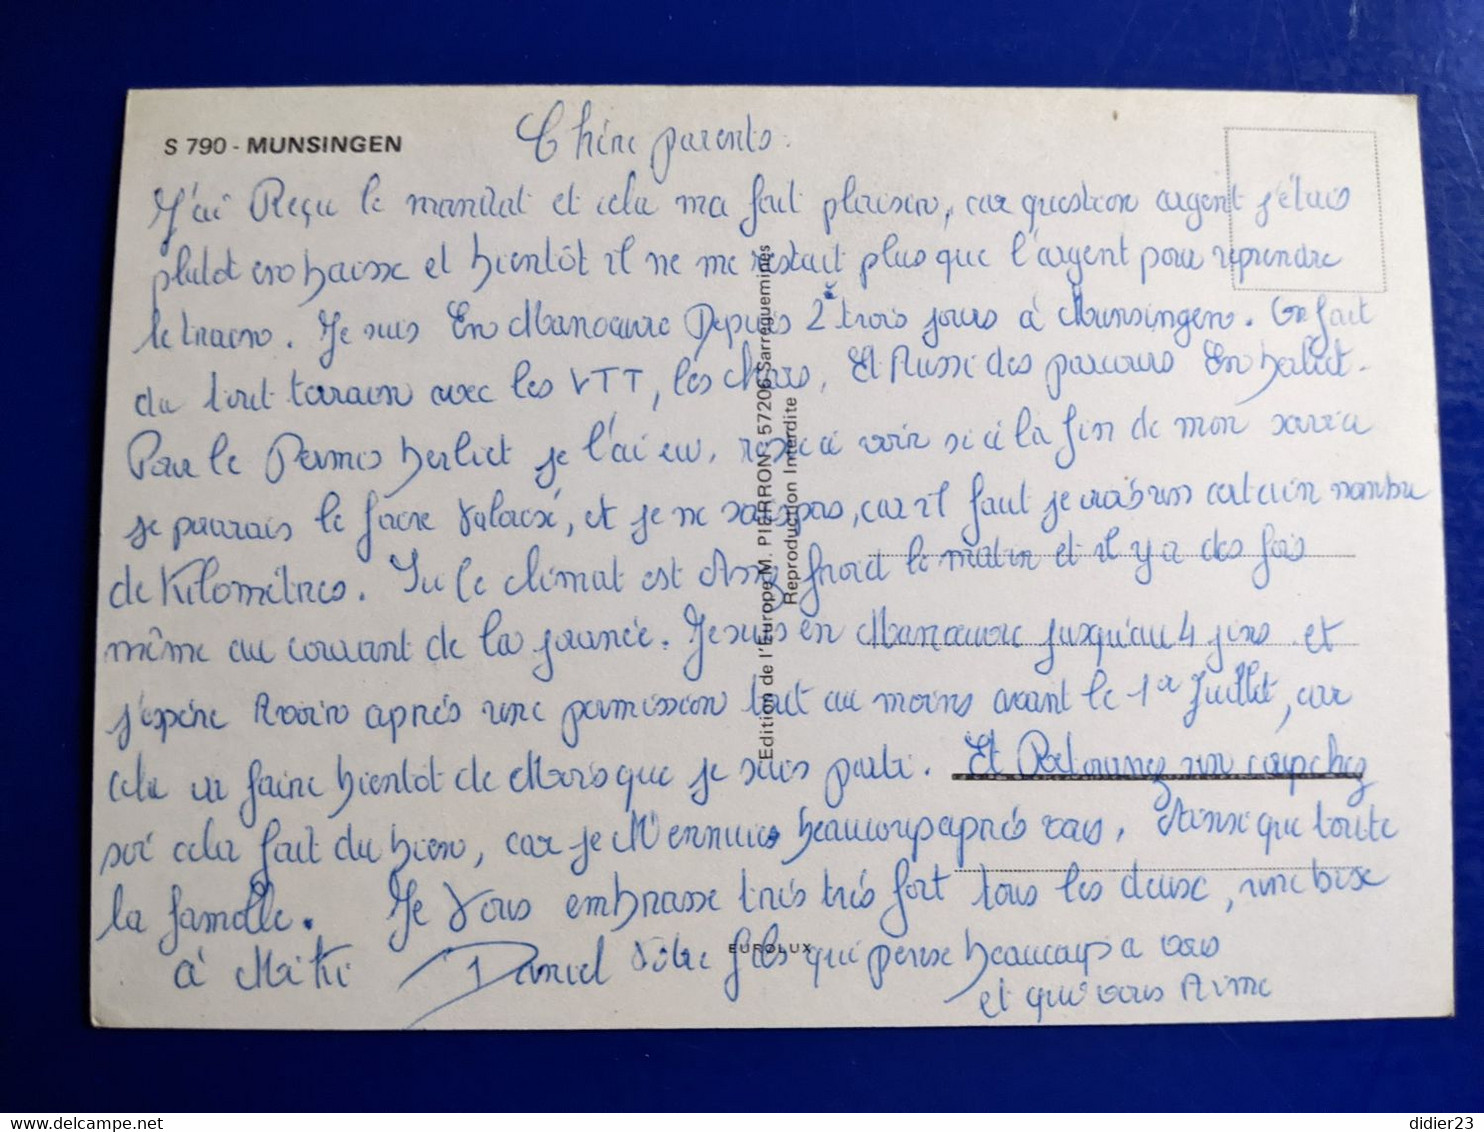 S 790 - MUNSINGEN
Chère parents.
J'ai Reçu le mandat et cela ma fait plaisir, car question argent j'étais
plutot en baisse et bientôt il ne me restait plus que l'argent pour reprendre
le train. Je suis En Manoeuvre Depuis 2 trois jours à Munsingen. On fait
du tout terrain avec les VTT, les chars, Et Aussi des parcours En berliet.
Pour le Permis berliet je l'ai eu, reste à voir si à la fin de mon
je pourrais le faire Valoisé, et je ne sais pas, car il faut je crois un certain nombre
de Kilomètres. Ici le climat est Assez froid le matin et il y a des fois
même au courant de la journée. Je suis en Manoeuvre jusqu'au 4 juin et
j'espère Avoir après une permission tout au moins avant le 1er Juillet, car
cela va faire bientôt de Mois que je suis parti. Et Retournez un coup chez
soi cela fait du bien, car je M'ennuies beaucoup après vous, Ainsi que toute
la famille. Je Vous embrasse très très fort tous les deux, une bise
à Miki Daniel Votre fils qui pense beaucoup a vous
et qui vous Aime
Edition de l'Europe M. PIERRON, 57206 Sarreguemines
Reproduction Interdite
EUROLUX
didier23